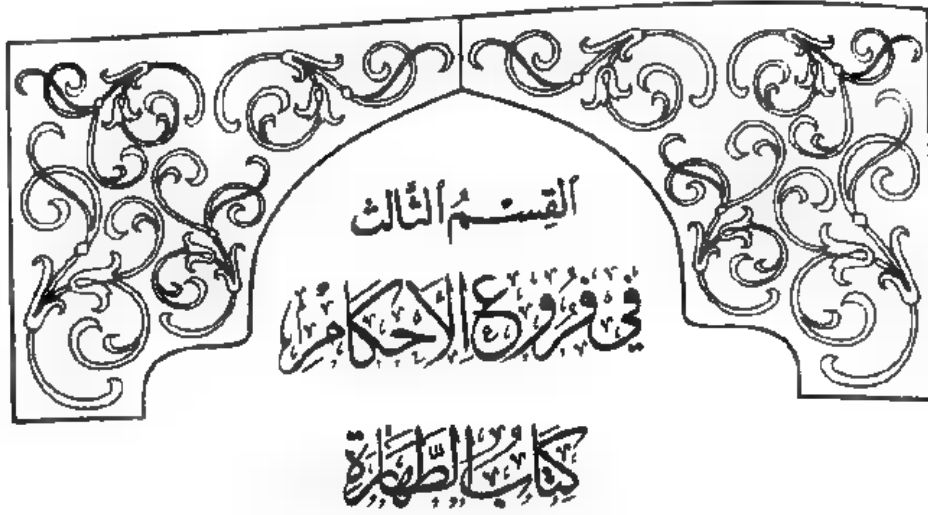 ٱلقِسْمُ ٱلثَّالث
في فروع الأحكام
كتاب الطّهارة